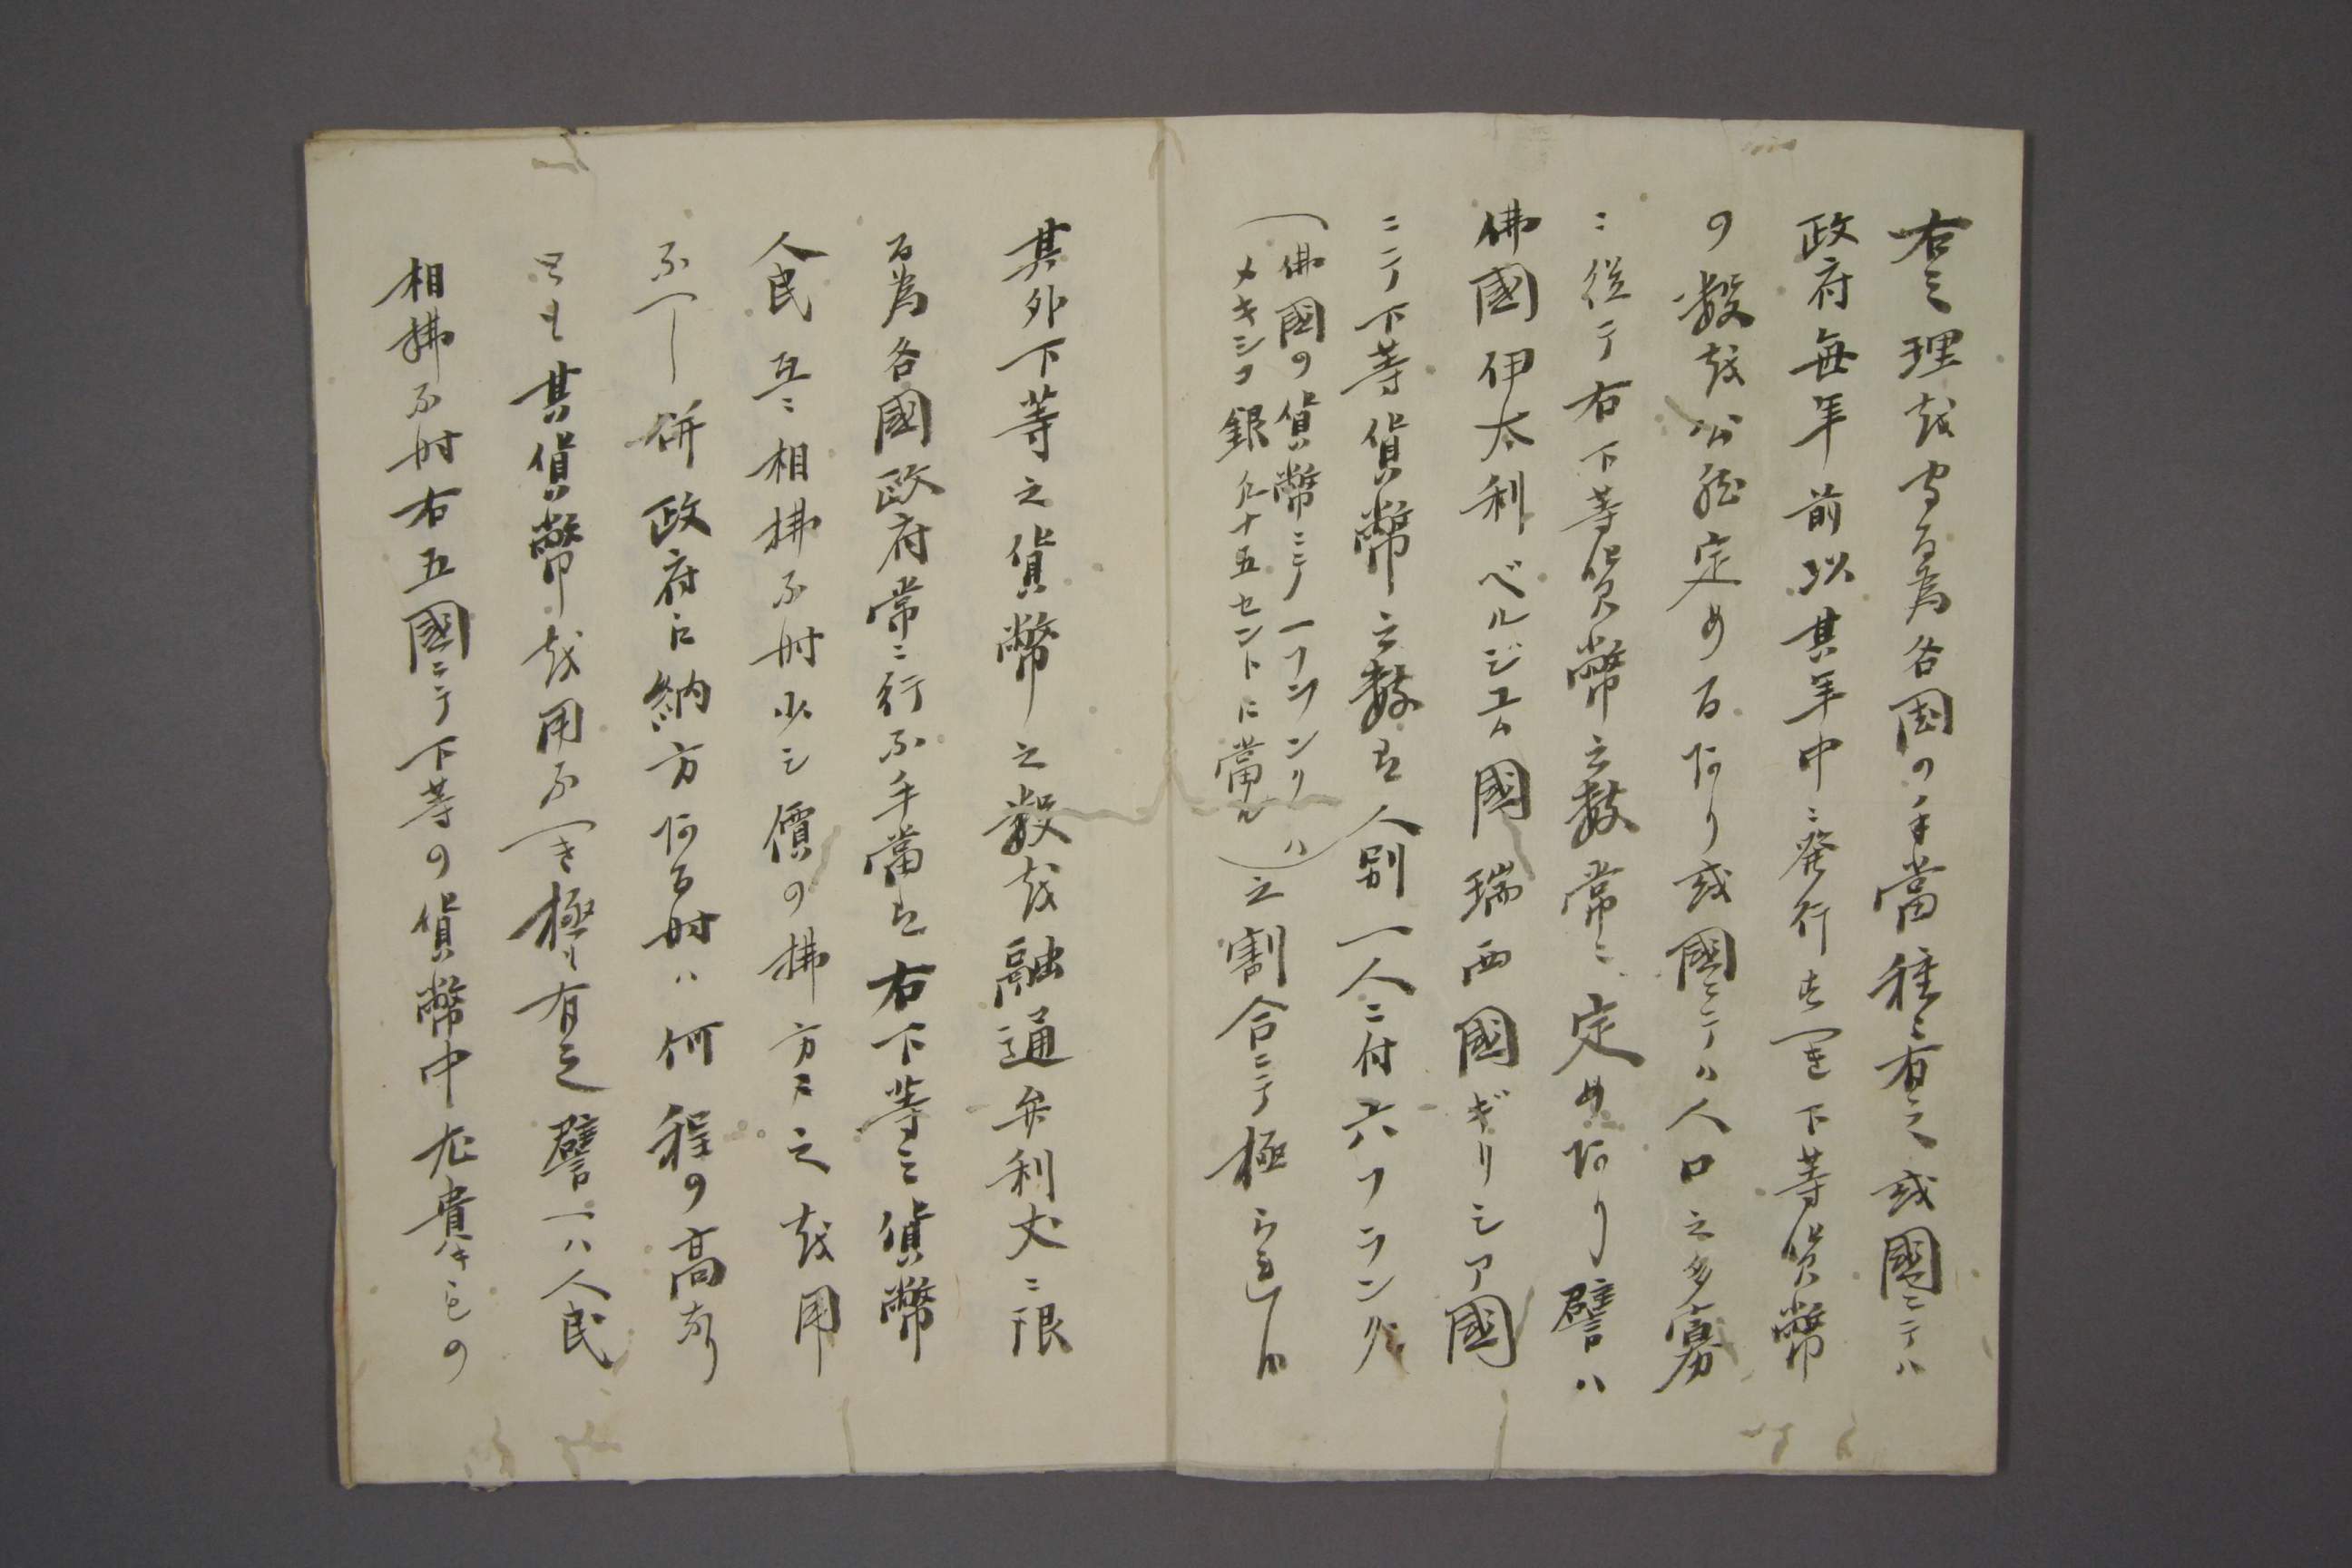 右之理越守る為各国の手當種々有之或國ニテハ
政府毎年前以其年中ニ発行春べき下等貨幣
の數越公然定める阿り或國ニテハ人口之多寡
ニ従テ右下等貨幣之数常ニ定め阿り譬ハ
佛國伊太利ベルジユム國瑞西國ギリシア國
ニテ下等貨幣之数者人別一人ニ付六フランク
(佛國の貨幣ニテ一フランクハ
メキシコ銀凡十五セントに當ル)之割合ニテ極られ
其外下等之貨幣之數越融通弁利丈ニ限
る為各國政府常ニ行ふ手當者右下等之貨幣
人民互ニ相拂ふ時少シ價の拂方ニ之越用
ふべし併政府に納方阿る時ハ何程の高なり
とも其貨幣越用ふべき極も有之譬ヘハ人民
相拂ふ時右五國ニテ下等の貨幣中尤貴きもの